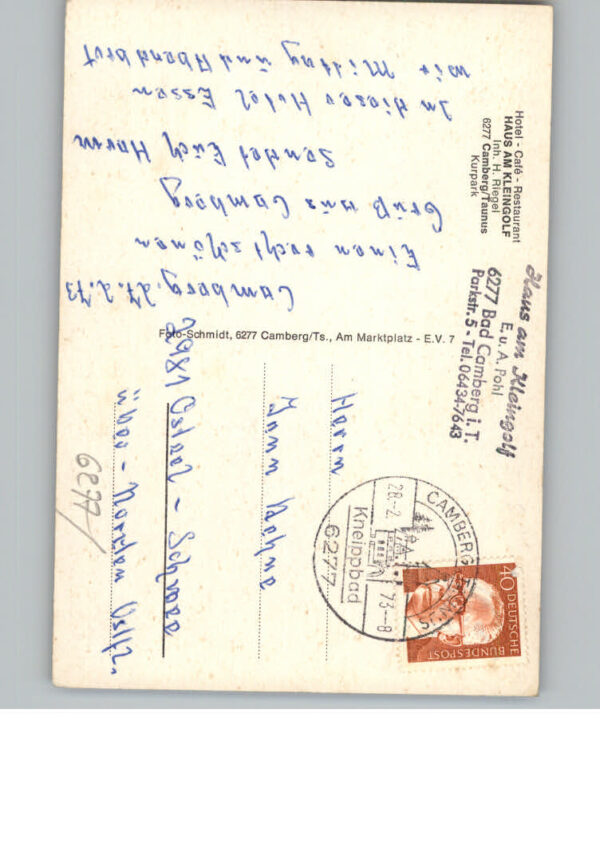 Hotel - Café - Restaurant
HAUS AM KLEINGOLF
Inh. H. Riegel
6277 Camberg/Taunus
Kurpark
Haus am Kleingolf
E. u. A. Pohl
6277 Bad Camberg i. T.
Parkstr. 5 - Tel. 06434-7643
Camberg, 27.2.73
Einen recht schönen
Grüß aus Camberg
Sendet Euch Harm
In dieser Hotel Essen
wir Mittag und Abendbrot
Foto-Schmidt, 6277 Camberg/Ts., Am Marktplatz - E.V. 7
CAMBERG
28.-2.
73.-8
Kneippbad
6277
40 DEUTSCHE
BUNDESPOST
Herrn
2981 Osteel -
über - Norden Ostf.
6277